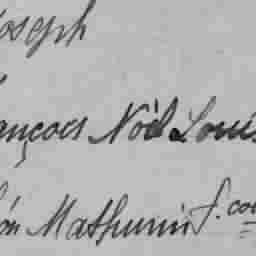 Joseph
ançois Noël Louis
ón Mathurin f. con